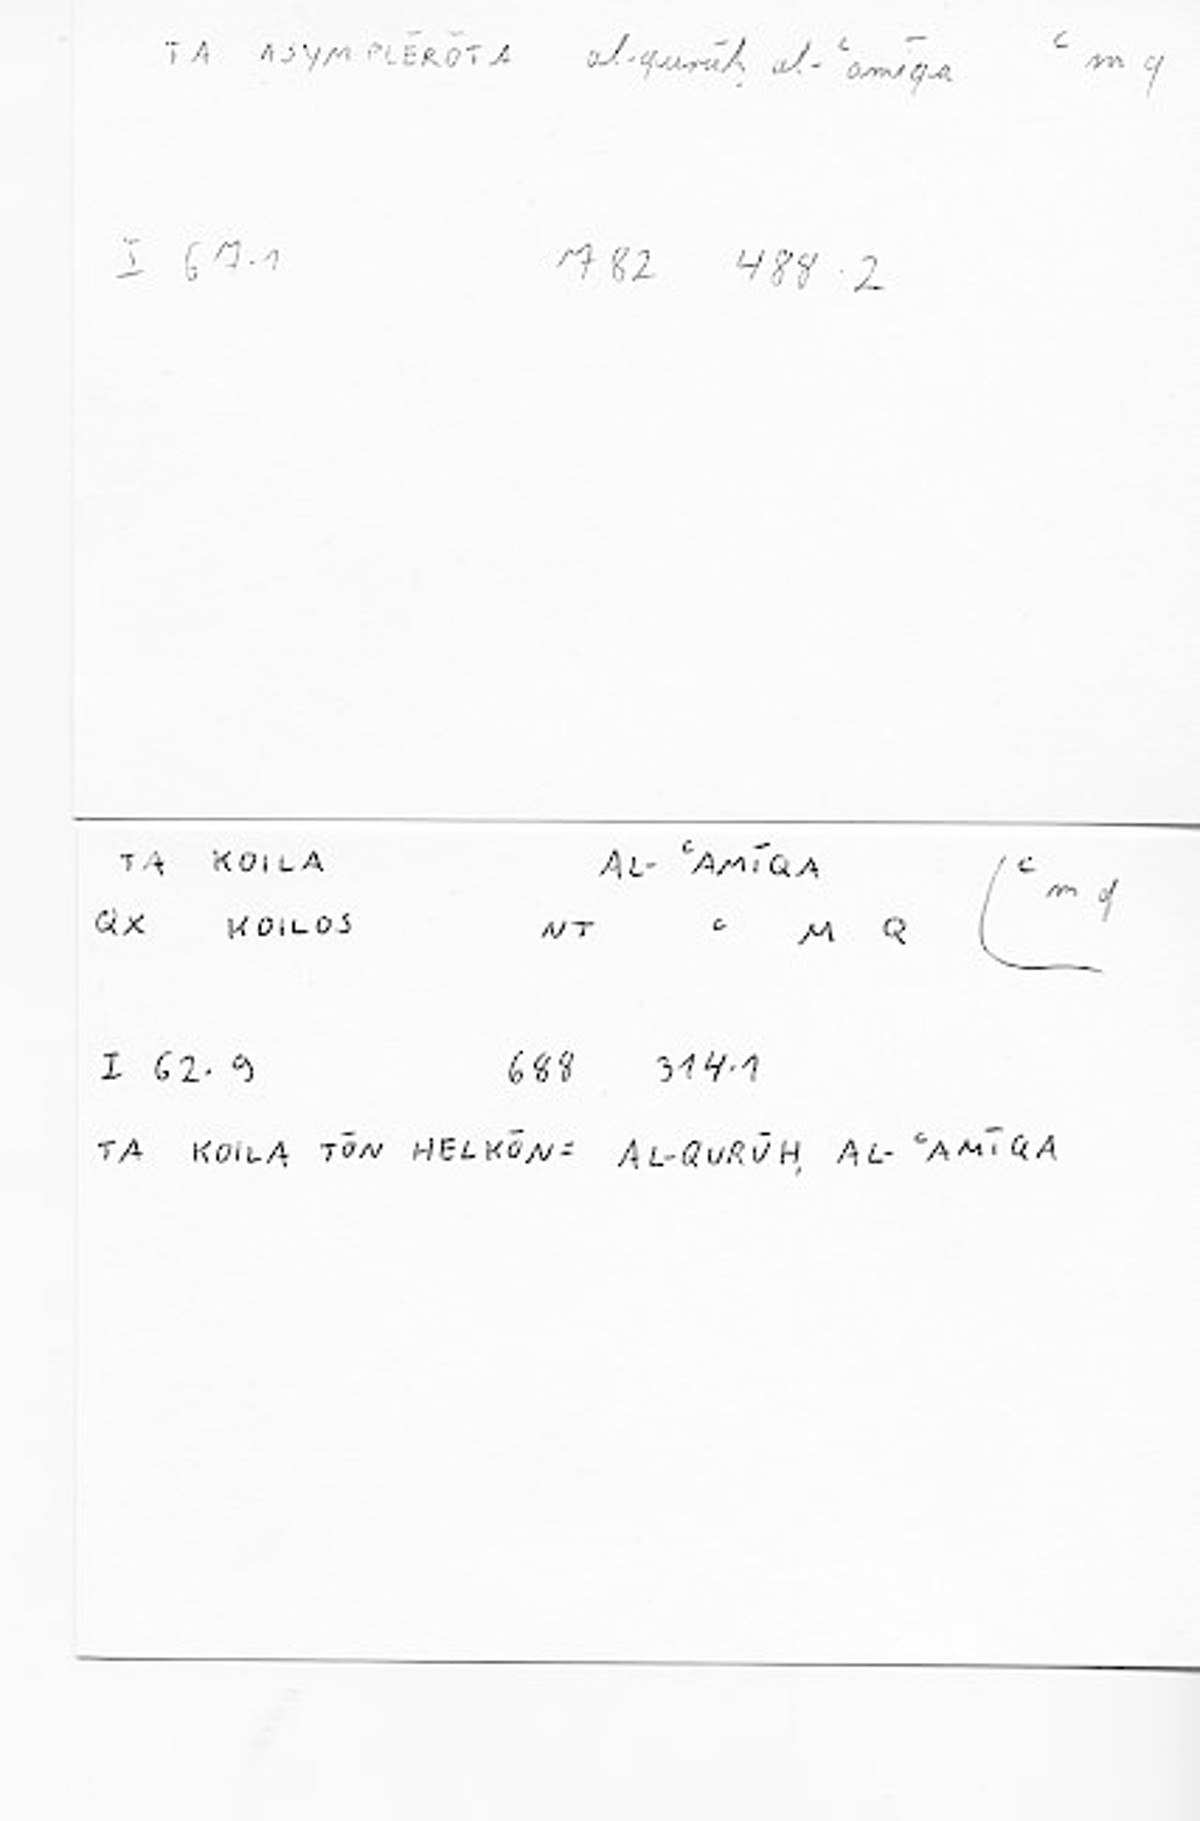 TA ASYMPLĒRŌTA al-qurūḥ al-ʿamīqa ʿmq
I 67.1 782 488.2
TA KOILA AL-ʿAMĪQA ʿmq
QX KOILOS NT ʿ M Q
I 62.9 688 314.1
TA KOILA TŌN HELKŌN= AL-QURŪḤ AL-ʿAMĪQA